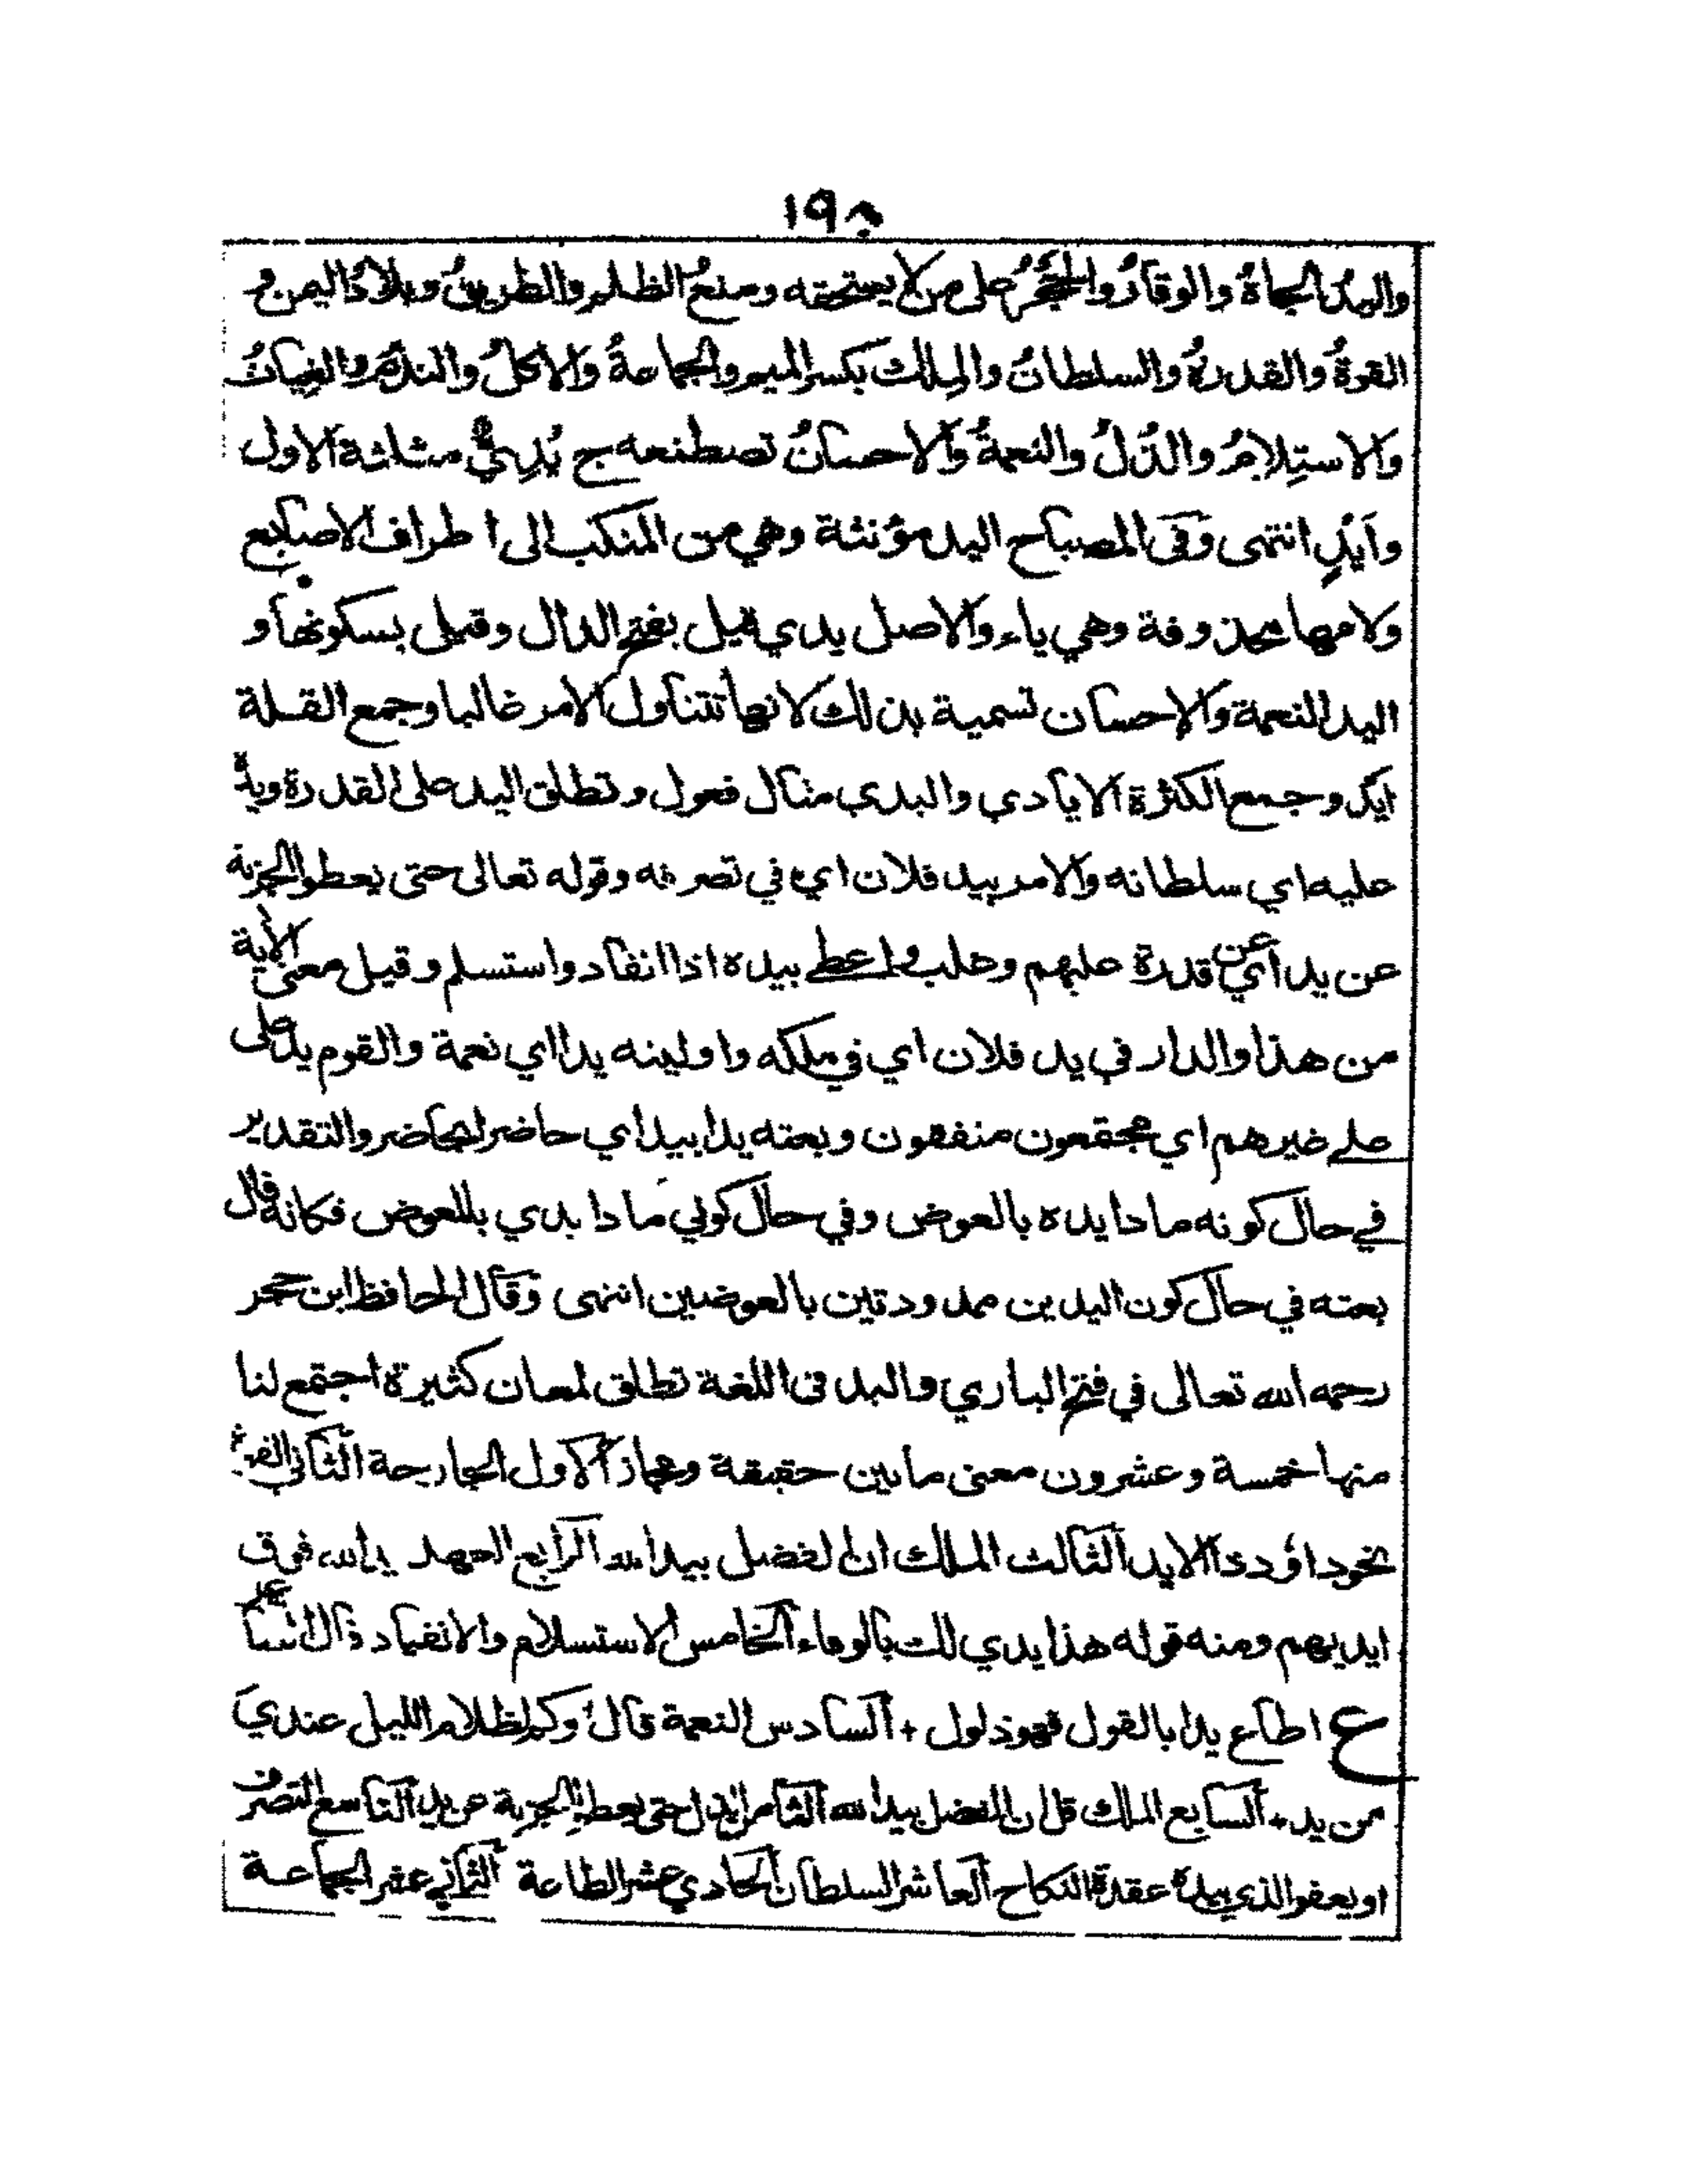 ١٩٨
واليدُ الجاهُ والوقارُ والحَجْرُ على من لا يستحقه ومنعُ الظلم والطريقُ وبلادُ اليمن و
القوةُ والقدرةُ والسلطانُ والمِلك بكسر الميم والجماعةُ والاكلُ والندمُ والغياثُ
والاستِلامُ والذلُ والنعمةُ والاحسانُ تصطنعه ج يُدِيٌّ مثلثة الاول
وأيدٍ انتهى وفى المصباح اليد مؤنثة وهي من المنكب الى اطراف الاصابع
ولامها محذوفة وهي ياء والاصل يدي قيل بفتح الدال وقيل بسكونها و
اليد النعمة والاحسان تسمية بذلك لانها تتناول الامر غالبا وجمع القلة
ايد وجمع الكثرة الايادي واليدى مثال فعول وتطلق اليد على القدرة ويده
عليه اي سلطانه والامر بيد فلان اي في تصرفه وقوله تعالى حتى يعطوا الجزية
عن يد أي عن قدرة عليهم وغلب واعطے بيده اذا انقاد واستسلم وقيل معنى الآية
من هذا والدار في يد فلان اي في ملكه واوليته يدا اي نعمة والقوم يد على
علے غيرهم اي مجتمعون متفقون وبعته يدا بيد اي حاضرا بحاضر والتقدير
في حال كونه مادا يده بالعوض وفي حال كوني مادا يدي بالمعوض فكانه قال
بعته في حال كون اليدين ممدودتين بالعوضين انتهى وقال الحافظ ابن حجر
رحمه الله تعالى في فتح الباري واليد فى اللغة تطلق لمعان كثيرة اجتمع لنا
منها خمسة وعشرون معنى ما بين حقيقة ومجاز الاول الجارحة الثاني القوة
نحو داؤد ذا الايد الثالث الملك ان الفضل بيد الله الرابع العهد يد الله فوق
ايديهم ومنه قوله هذا يدي لك بالوفاء الخامس الاستسلام والانقياد قال الشاعر
ع اطاع يدا بالقول فهو ذلول + السادس النعمة قال وكم لظلام الليل عندي
من يد + السابع الملك قل ان الفضل بيد الله الثامن الذل حتى يعطوا الجزية عن يد التاسع التصرف
او يعفو الذي بيده عقدة النكاح العاشر السلطان الحادي عشر الطاعة الثاني عشر الجماعة